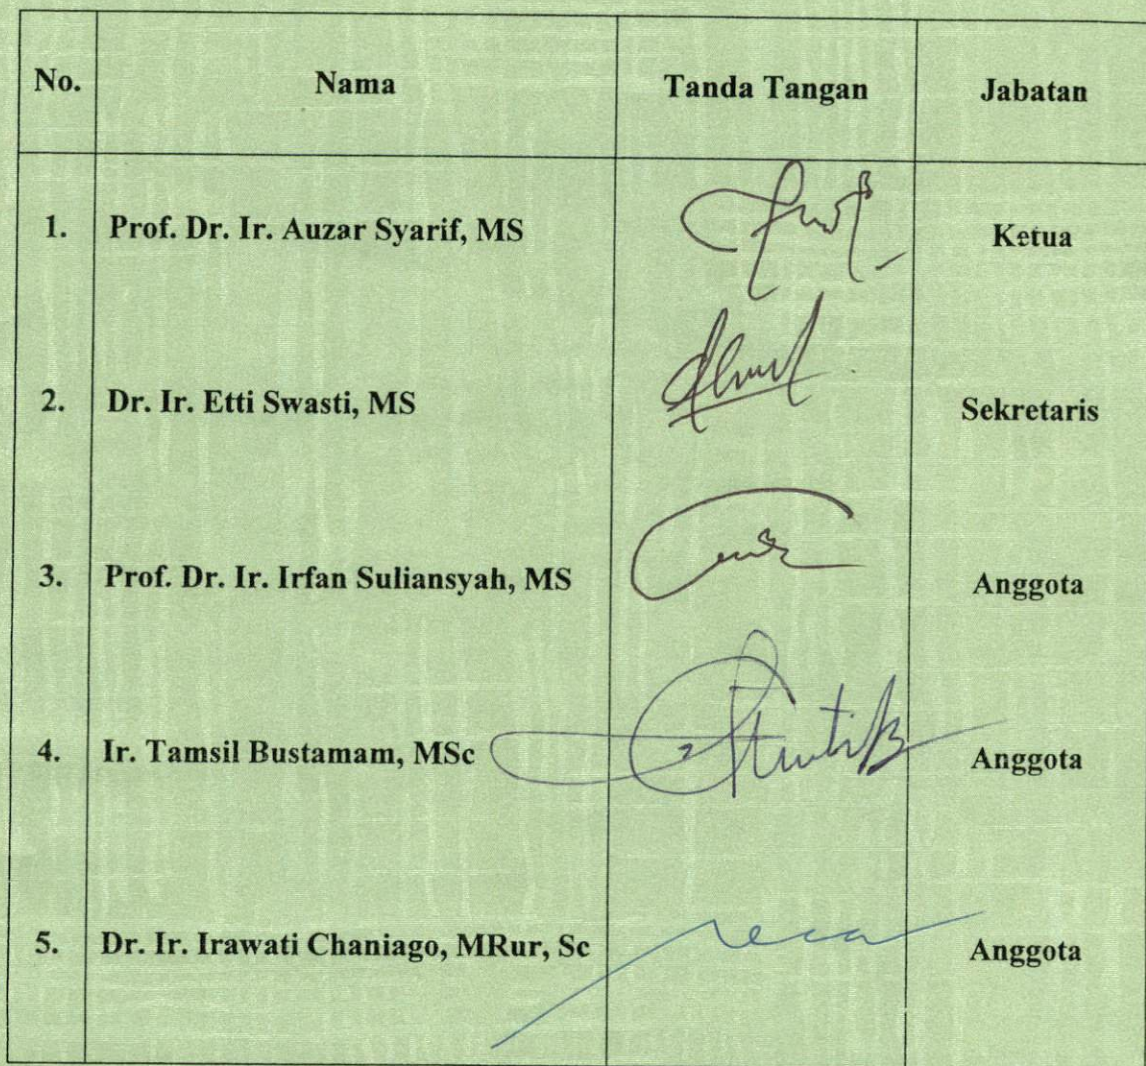 No. Nama Tanda Tangan Jabatan
1. Prof. Dr. Ir. Auzar Syarif, MS Ketua
2. Dr. Ir. Etti Swasti, MS Sekretaris
3. Prof. Dr. Ir. Irfan Suliansyah, MS Anggota
4. Ir. Tamsil Bustamam, MSc Anggota
5. Dr. Ir. Irawati Chaniago, MRur, Sc Anggota